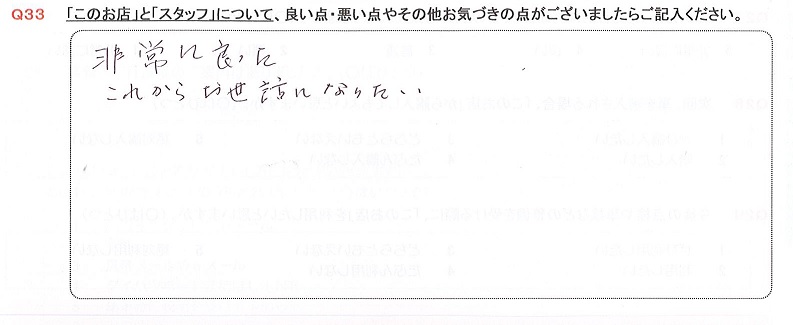 Q33 「このお店」と「スタッフ」について、良い点・悪い点やその他お気づきの点がございましたらご記入ください。
非常に良った
これからお世話になりたい